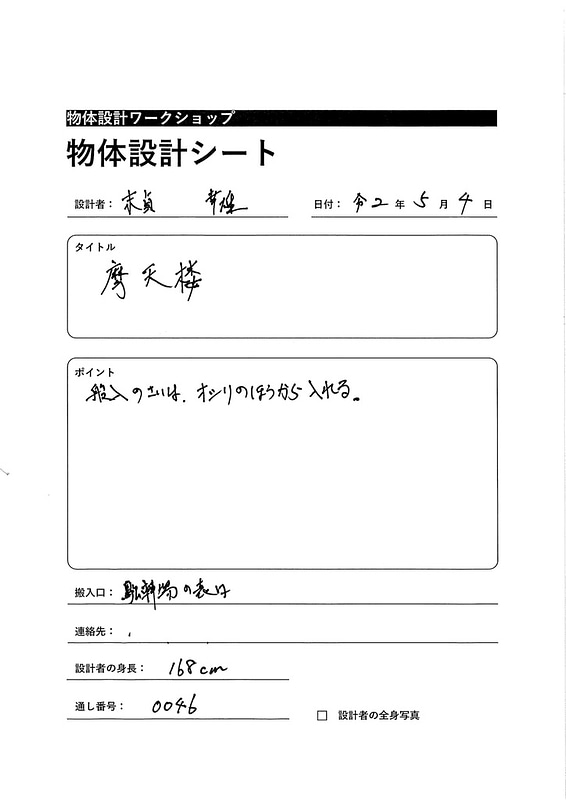 物体設計ワークショップ
物体設計シート
設計者： 末貞 日付： 令2年5月4日
タイトル
摩天楼
ポイント
搬入のさいは、オシリのほうから入れる。
搬入口： 駐車場の表口
連絡先：
設計者の身長： 168cm
通し番号： 0046
□ 設計者の全身写真